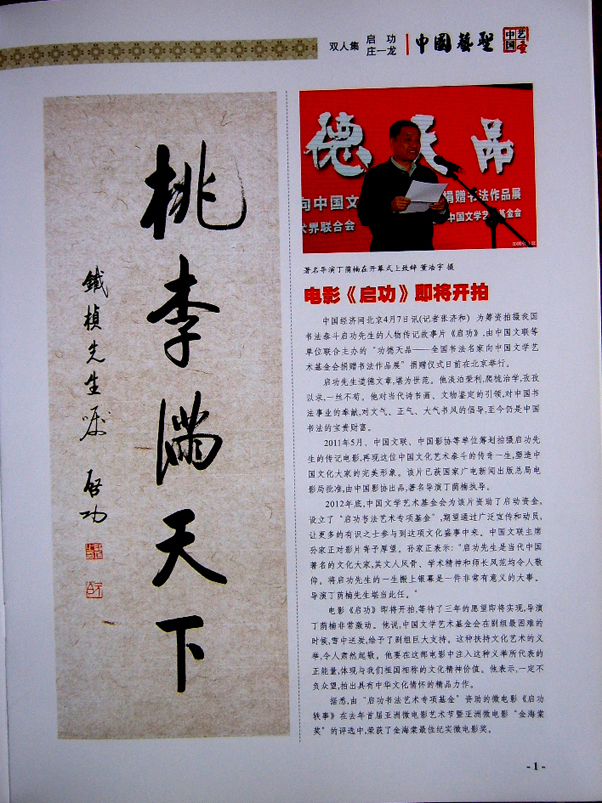 双人集 启功
庄一龙
中国艺圣
中国
艺圣
桃李满天下
铁桢先生嘱 启功
德天品
向中国文
捐赠书法作品展
术界联合会
中国文学艺术基金会
著名导演丁荫楠在开幕式上致辞 董浩宇 摄
电影《启功》即将开拍
中国经济网北京4月7日讯(记者张济和) 为筹资拍摄我国
书法泰斗启功先生的人物传记故事片《启功》,由中国文联等
单位联合主办的“功德天品——全国书法名家向中国文学艺
术基金会捐赠书法作品展”捐赠仪式日前在北京举行。
启功先生道德文章,堪为世范。他淡泊荣利,爬梳治学,孜孜
以求,一丝不苟。他对当代诗书画、文物鉴定的引领,对中国书
法事业的奉献,对文气、正气、大气书风的倡导,至今仍是中国
书法的宝贵财富。
2011年5月,中国文联、中国影协等单位筹划拍摄启功先
生的传记电影,再现这位中国文化艺术泰斗的传奇一生,塑造中
国文化大家的完美形象。该片已获国家广电新闻出版总局电
影局批准,由中国影协出品,著名导演丁荫楠执导。
2012年底,中国文学艺术基金会为该片资助了启动资金,
设立了“启功书法艺术专项基金”,期望通过广泛宣传和动员,
让更多的有识之士参与到这项文化盛事中来。中国文联主席
孙家正对影片寄予厚望。孙家正表示:“启功先生是当代中国
著名的文化大家,其文人风骨、学术精神和师长风范均令人敬
仰。将启功先生的一生搬上银幕是一件非常有意义的大事。
导演丁荫楠先生堪当此任。”
电影《启功》即将开拍,等待了三年的愿望即将实现,导演
丁荫楠非常激动。他说,中国文学艺术基金会在剧组最困难的
时候,雪中送炭,给予了剧组巨大支持。这种扶持文化艺术的义
举,令人肃然起敬。他要在这部电影中注入这种义举所代表的
正能量,体现与我们祖国相称的文化精神价值。他表示,一定不
负众望,拍出具有中华文化情怀的精品力作。
据悉,由“启功书法艺术专项基金”资助的微电影《启功
轶事》在去年首届亚洲微电影艺术节暨亚洲微电影“金海棠
奖”的评选中,荣获了金海棠最佳纪实微电影奖。
- 1 -